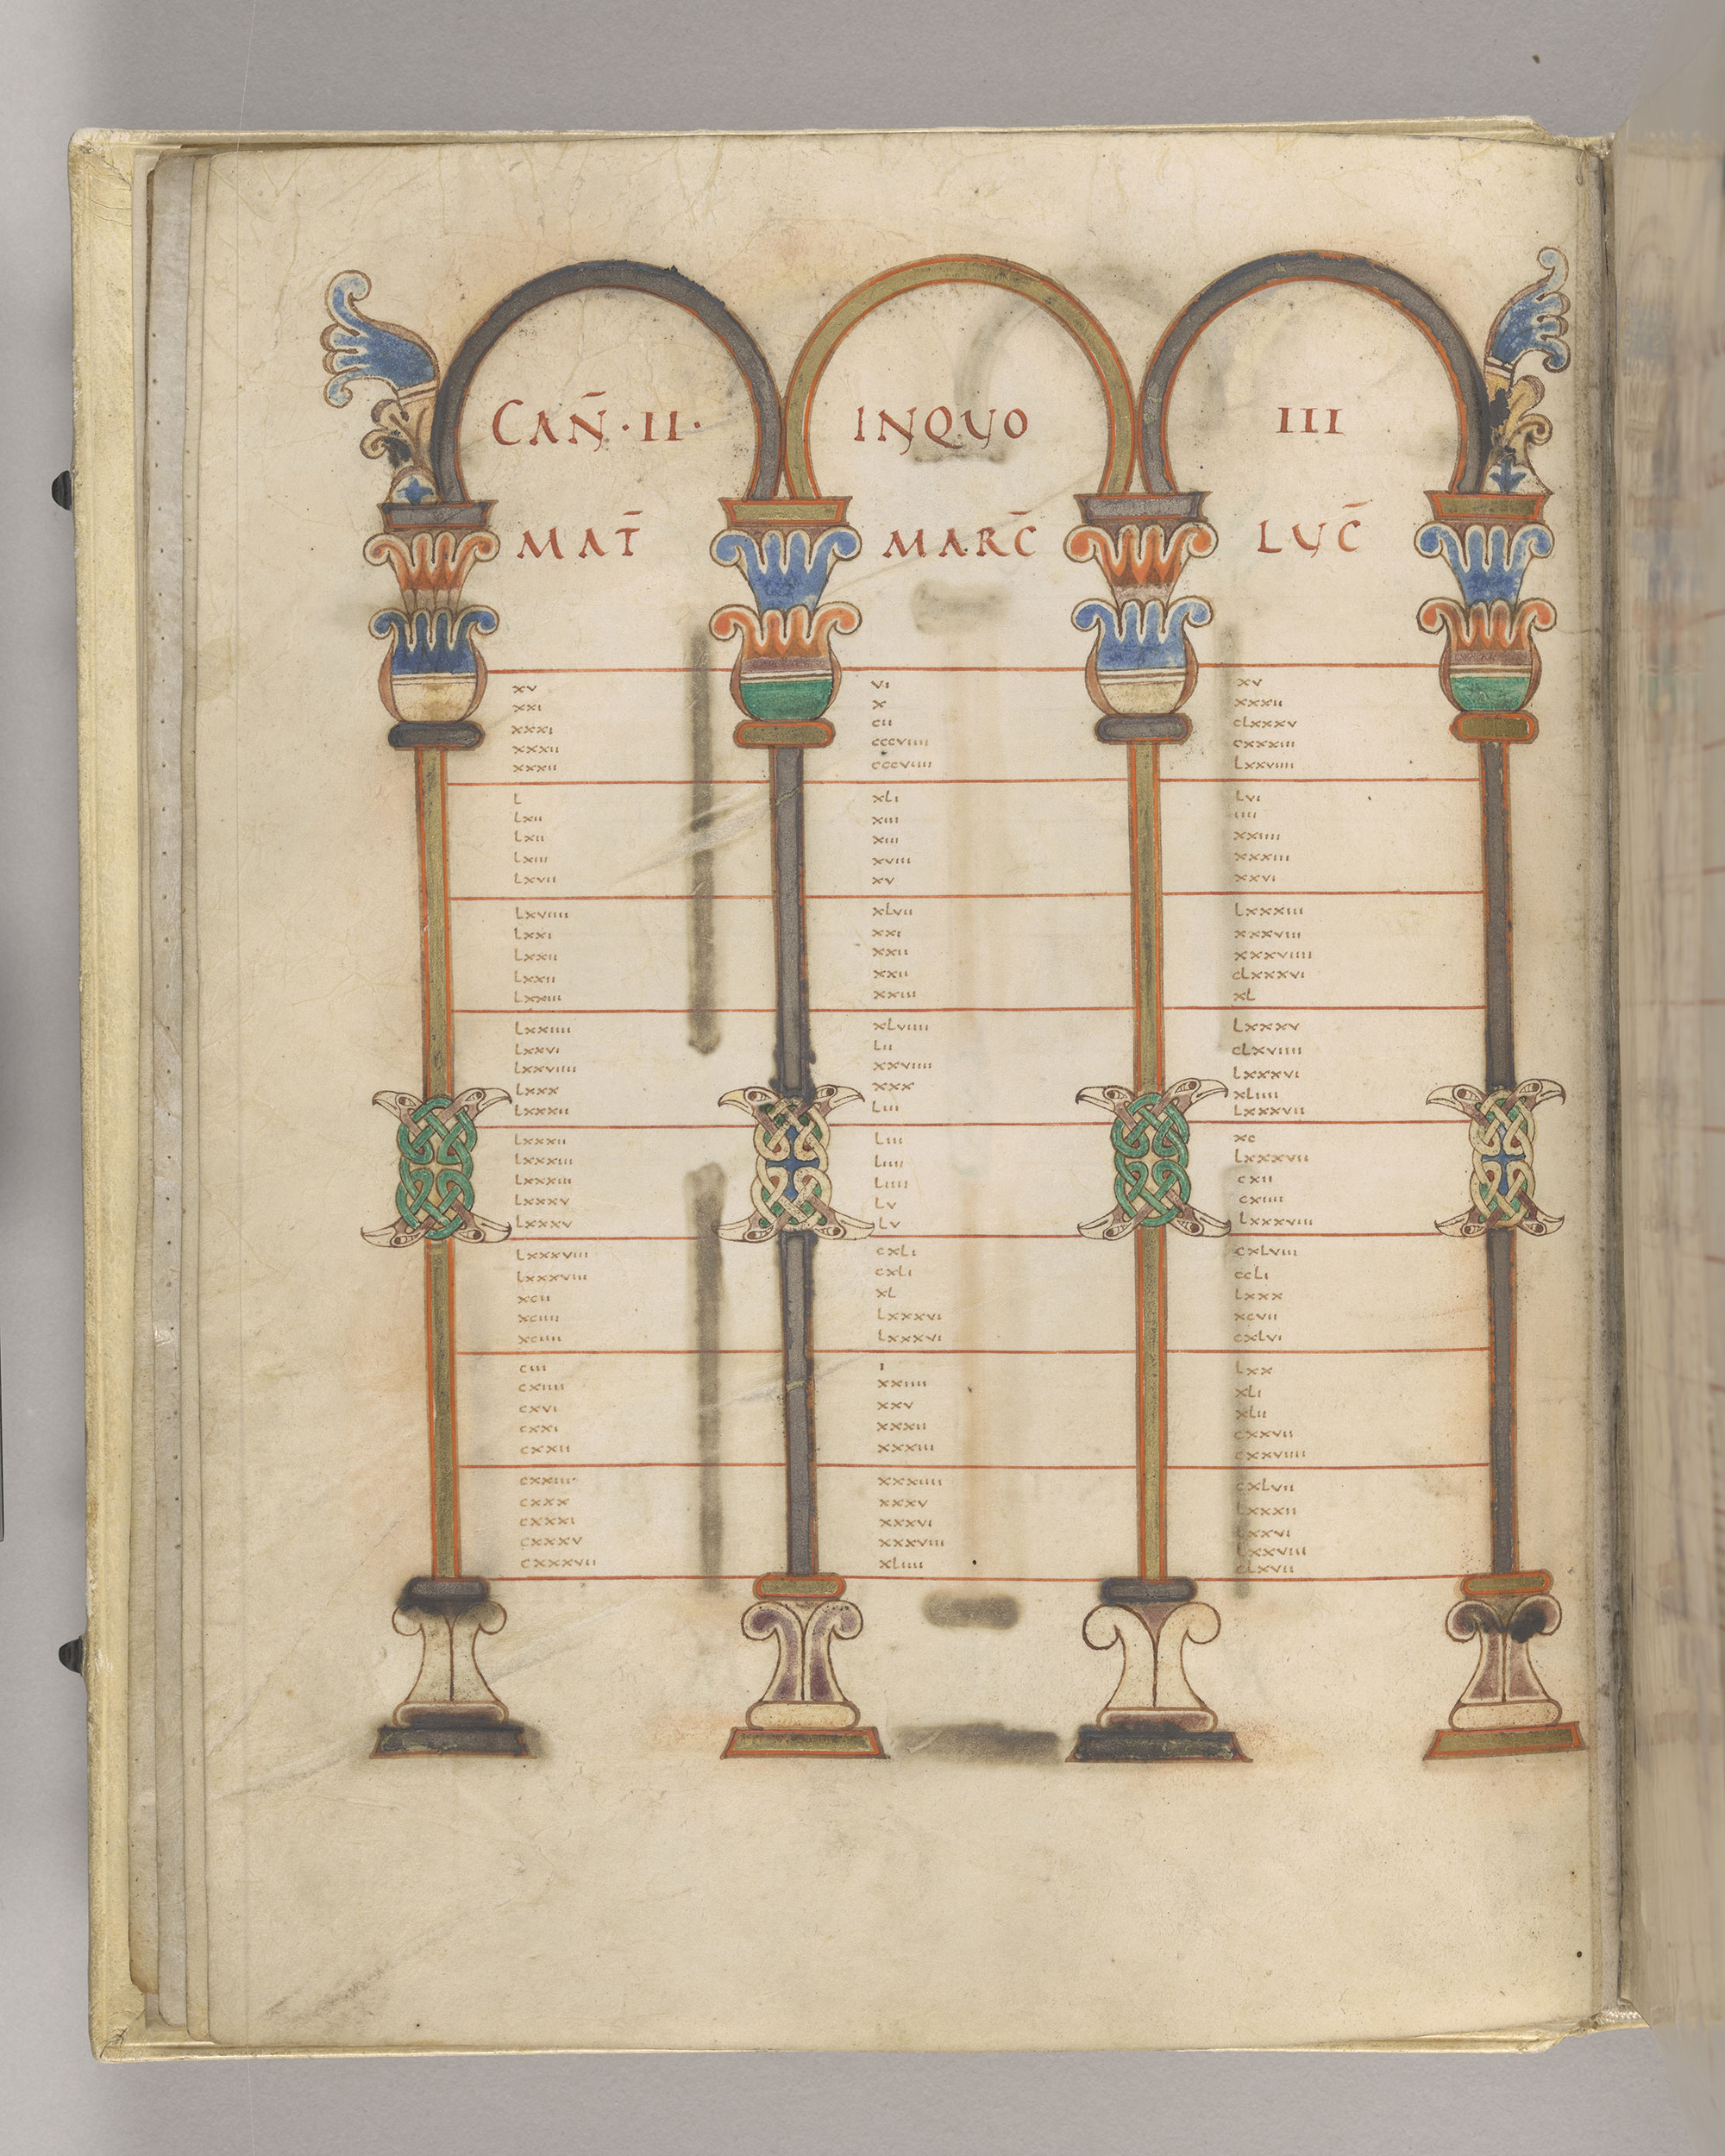 CAN̄·II· INQUO III
MAT̄ MARC̄ LUC̄
xv vi xv
xxi x xxxii
xxxi cii clxxxv
xxxii cccviiii cxxxiii
xxxii cccviiii lxxviiii
l xli lvi
lxii xiii iiii
lxii xiii xxiiii
lxiii xviii xxxiii
lxvii xv xxvi
lxviiii xlvii lxxxiii
lxxi xxi xxxviii
lxxii xxii xxxviiii
lxxii xxii clxxxvi
lxxiii xxiii xl
lxxiiii xlviiii lxxxv
lxxvi lii clxviiii
lxxviiii xxviiii lxxxvi
lxxx xxx xliiii
lxxxii liii lxxxvii
lxxxii liii xc
lxxxiii liiii lxxxvii
lxxxiii liiii cxii
lxxxv lv cxiiii
lxxxv lv lxxxviii
lxxxviii cxli cxlviii
lxxxviii cxli ccli
xcii xl lxxx
xciiii lxxxvi xcvii
xciiii lxxxvi cxlvi
ciii i lxx
cxiiii xxiiii xli
cxvi xxv xlii
cxxi xxxii cxxvii
cxxii xxxiii cxxviiii
cxxiii xxxiiii cxlvii
cxxx xxxv lxxxii
cxxxi xxxvi lxxvi
cxxxv xxxviii lxxviii
cxxxvii xliiii clxvii